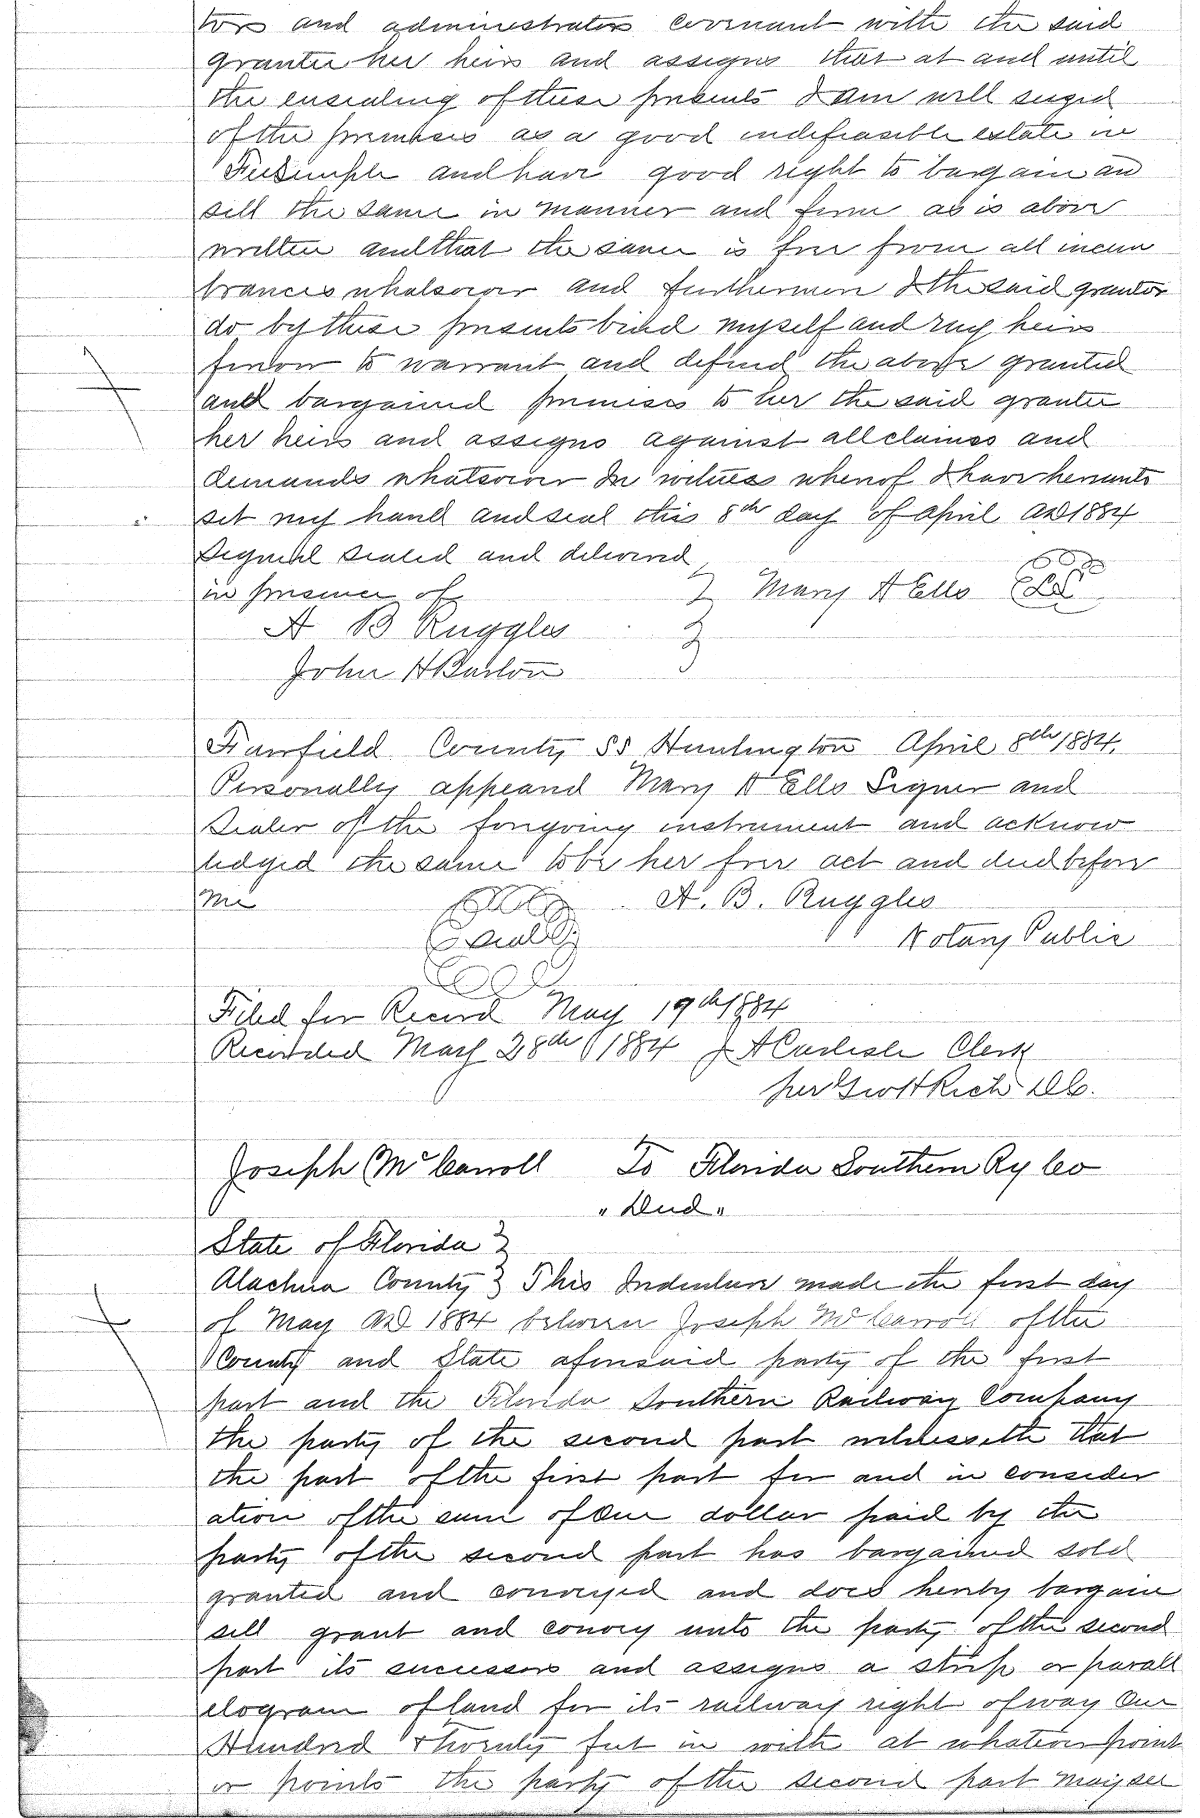 tors and administrators covenant with the said
grantee her heirs and assigns that at and until
the ensealing of these presents I am well seized
of the premises as a good indefeasible estate in
Feesimple and have good right to bargain an
sell the same in manner and form as is above
written and that the same is free from all incum
brances whatsoever and furthermore I the said grantor
do by these presents bind myself and my heirs
forever to warrant and defend the above granted
and bargained premises to her the said grantee
her heirs and assigns against all claims and
demands whatsoever In witness whereof I have hereunto
set my hand and seal this 8th day of April AD 1884
Signed sealed and delivered
in presence of } Mary A Ells
A B Ruggles }
John H Barlow
Fairfield County SS Huntington April 8th 1884.
Personally appeared Mary A Ells Signer and
Sealer of the foregoing instrument and acknow
ledged the same to be her free act and deed before
me A. B. Ruggles
Seal Notary Public
Filed for Record May 19th 1884
Recorded May 28th 1884 J A Carlisle Clerk
per Geo H Rich D.C.
Joseph McCarroll To Florida Southern Ry Co
" Deed "
State of Florida }
Alachua County } This Indenture made the first day
of May AD 1884 between Joseph McCarroll of the
County and State aforesaid party of the first
part and the Florida Southern Railway Company
the party of the second part witnesseth that
the part of the first part for and in consider
ation of the sum of One dollar paid by the
party of the second part has bargained sold
granted and conveyed and does hereby bargain
sell grant and convey unto the party of the second
part its successors and assigns a strip or parall
elogram of land for its railway right of way One
Hundred & twenty feet in with at whatever point
or points the party of the second part may sel